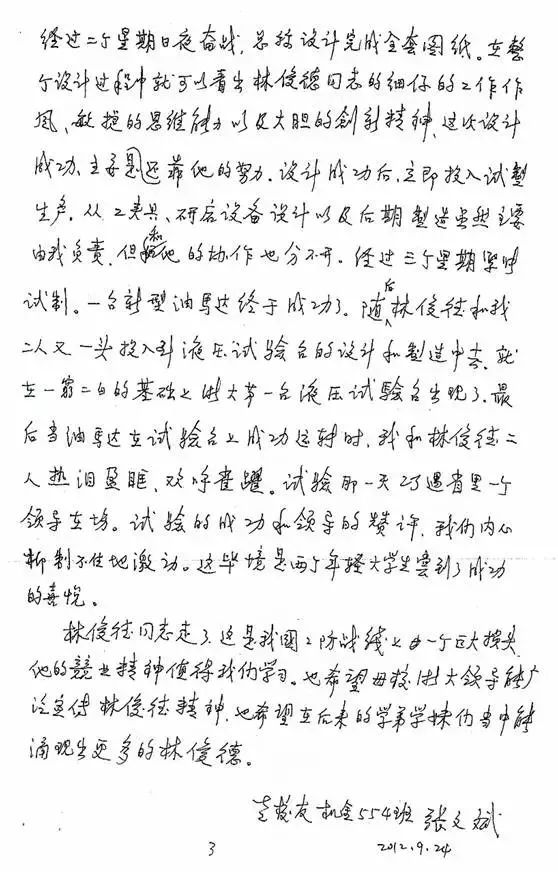 经过二个星期日夜奋战，总算设计完成全套图纸。在整
个设计过程中就可以看出林俊德同志的细仔的工作作
风、敏捷的思维能力以及大胆的创新精神，这次设计
成功，主要是还靠他的努力。设计成功后，立即投入试制
生产。从工夹具、研磨设备设计以及后期制造虽然主要
由我负责，但和他的协作也分不开。经过三个星期
试制。一台新型油马达终于成功了。随后林俊德和我
二人又一头投入到液压试验台的设计和制造中去，就
在一穷二白的基础上浙大第一台液压试验台出现了。最
后当油马达在试验台上成功运转时，我和林俊德二
人热泪盈眶，欢呼雀跃。试验那一天巧遇省里一个
领导在场。试验的成功和领导的赞许，我们内心
抑制不住地激动。这毕境是两个年轻大学生尝到了成功
的喜悦。
林俊德同志走了，这是我国工防战线上的一个巨大损失
他的敬业精神值得我们学习。也希望母校浙大领导能广
泛宣传林俊德精神，也希望在后来的学弟学妹们当中能
涌现出更多的林俊德。
老校友 机全554班 张文斌
3 2012.9.24